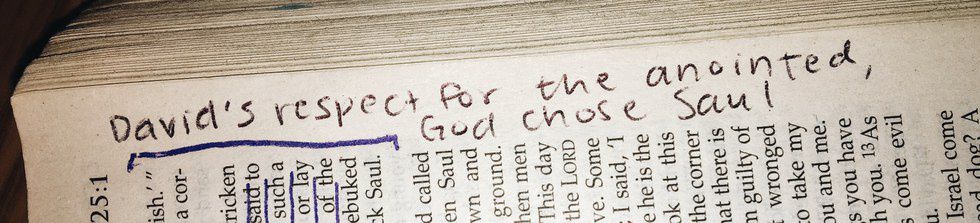 David's respect for the anointed,
God chose Saul
25:1
ish.'”
a cor-
ricken
said to
such a
or lay
of the
ebuked
k Saul.
d called
en Saul
wn and
ground.
hen men
This day
the LORD
ve. Some
I said, ‘I
e he is the
ok at this
the corner
hat there is
m guilty of
t wronged
o take my
u and me.
s you have
you. 13 As
come evil
Israel come
ing? A